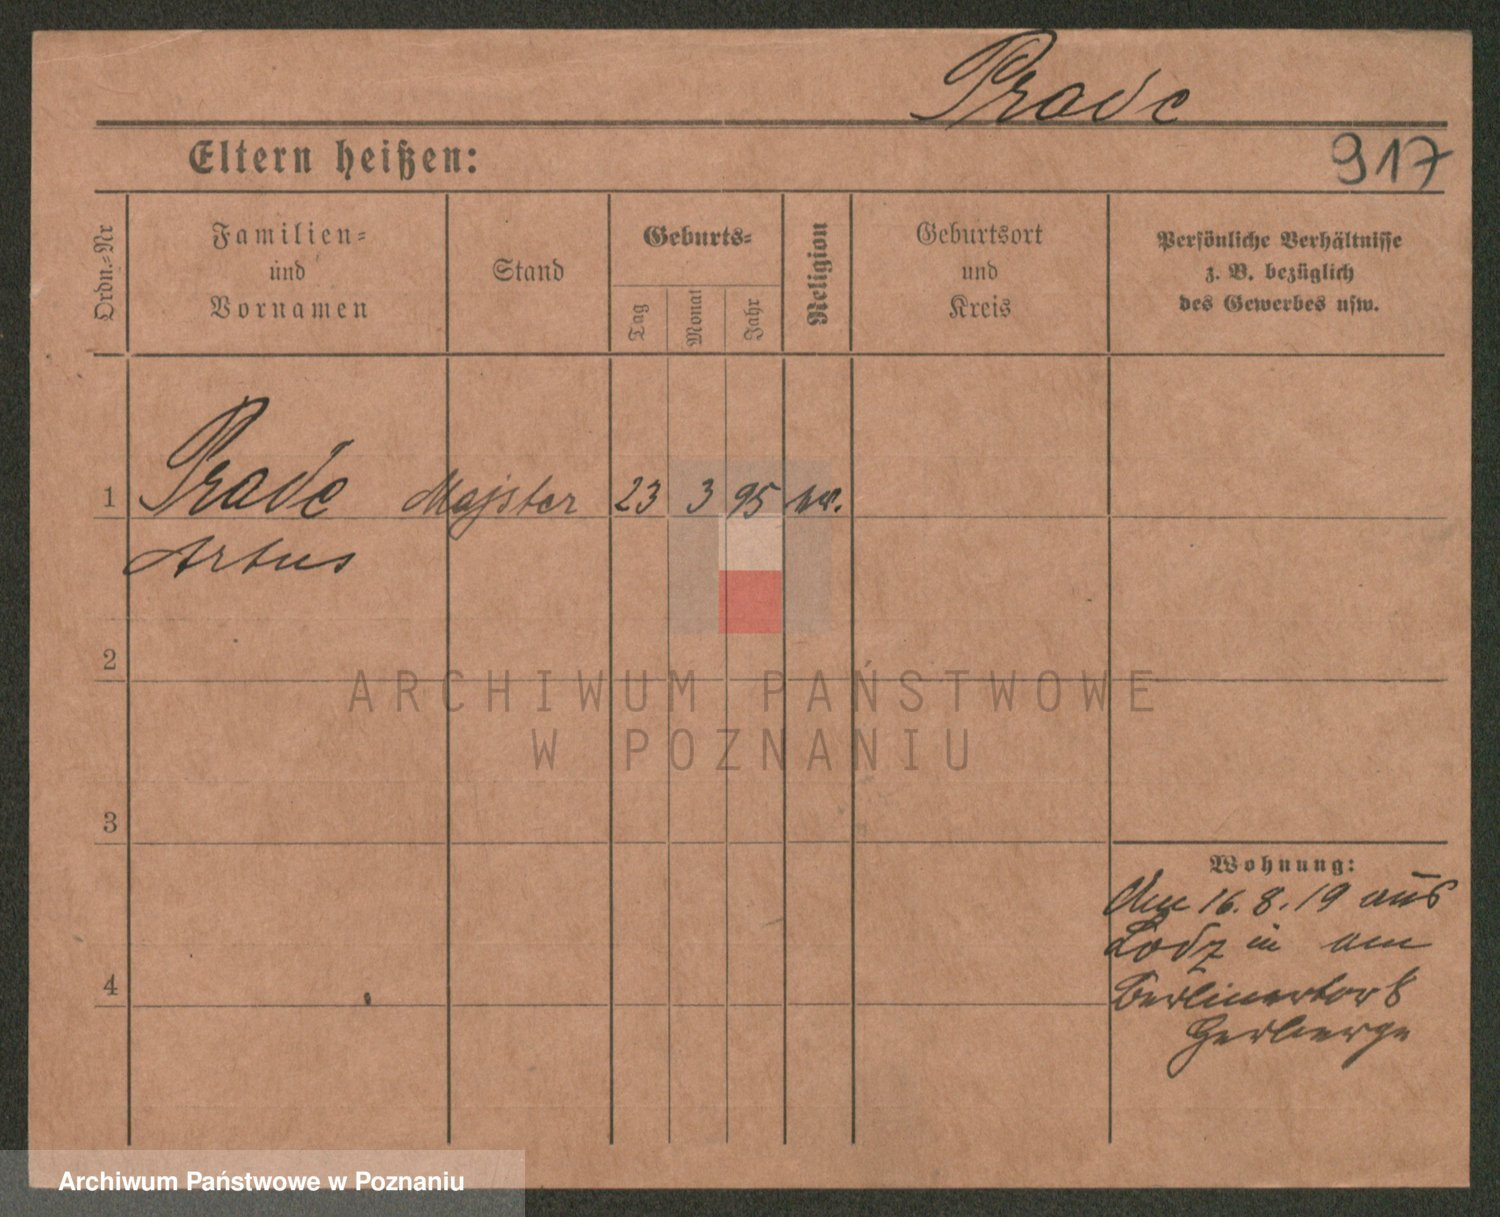 Prade
Eltern heißen:
917
Ordn.=Nr
Familien=
und
Vornamen
Stand
Geburts=
Tag
Monat
Jahr
Religion
Geburtsort
und
Kreis
Persönliche Verhältnisse
z. B. bezüglich
des Gewerbes usw.
1 Prade Majster 23 3 95
Artus
2
ARCHIWUM PAŃSTWOWE
W POZNANIU
3
Wohnung:
16. 8. 19 aus
Lodz in am
4
Berlinertor 8
Herberge
Archiwum Państwowe w Poznaniu